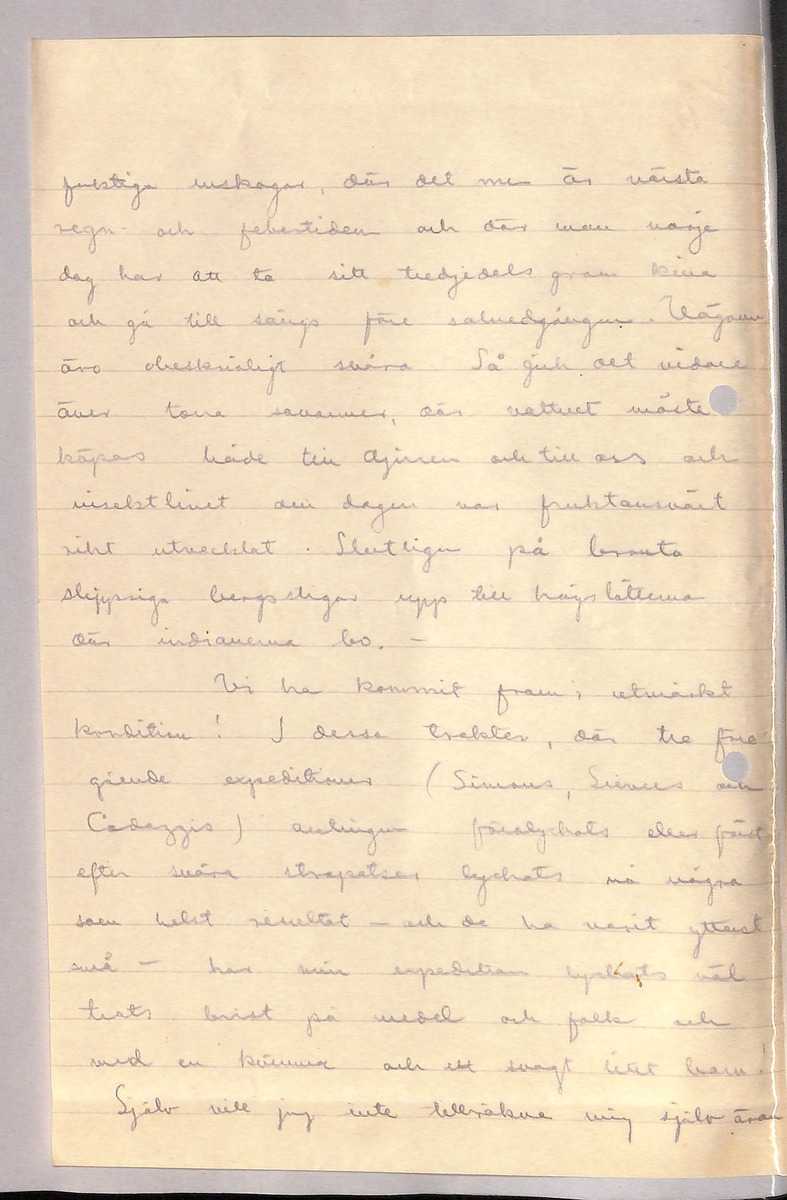 fuktiga urskogar, där det nu är värsta
regn- och febertiden och där man varje
dag har att ta sitt tredjedels gram kina
och gå till sängs före solnedgången. Vägarna
äro obeskrivligt svåra. Så gick det vidare
över torra savanner, där vattnet måste
köpas både till djuren och till oss och
insektlivet om dagen var fruktansvärt
rikt utvecklat. Slutligen på branta
slippriga bergstigar upp till högslätterna
där indianerna bo. —
Vi ha kommit fram i utmärkt
kondition! I dessa trakter, där tre före-
gående expeditioner (Simons, Sievers och
Codazzis) antingen förolyckats eller först
efter svåra strapatser lyckats nå några
som helst resultat — och de ha varit ytterst
små — har min expedition lyckats väl
trots brist på medel och folk och
med en kvinna och ett svagt litet barn!
Själv vill jag inte tillräkna mig själv äran